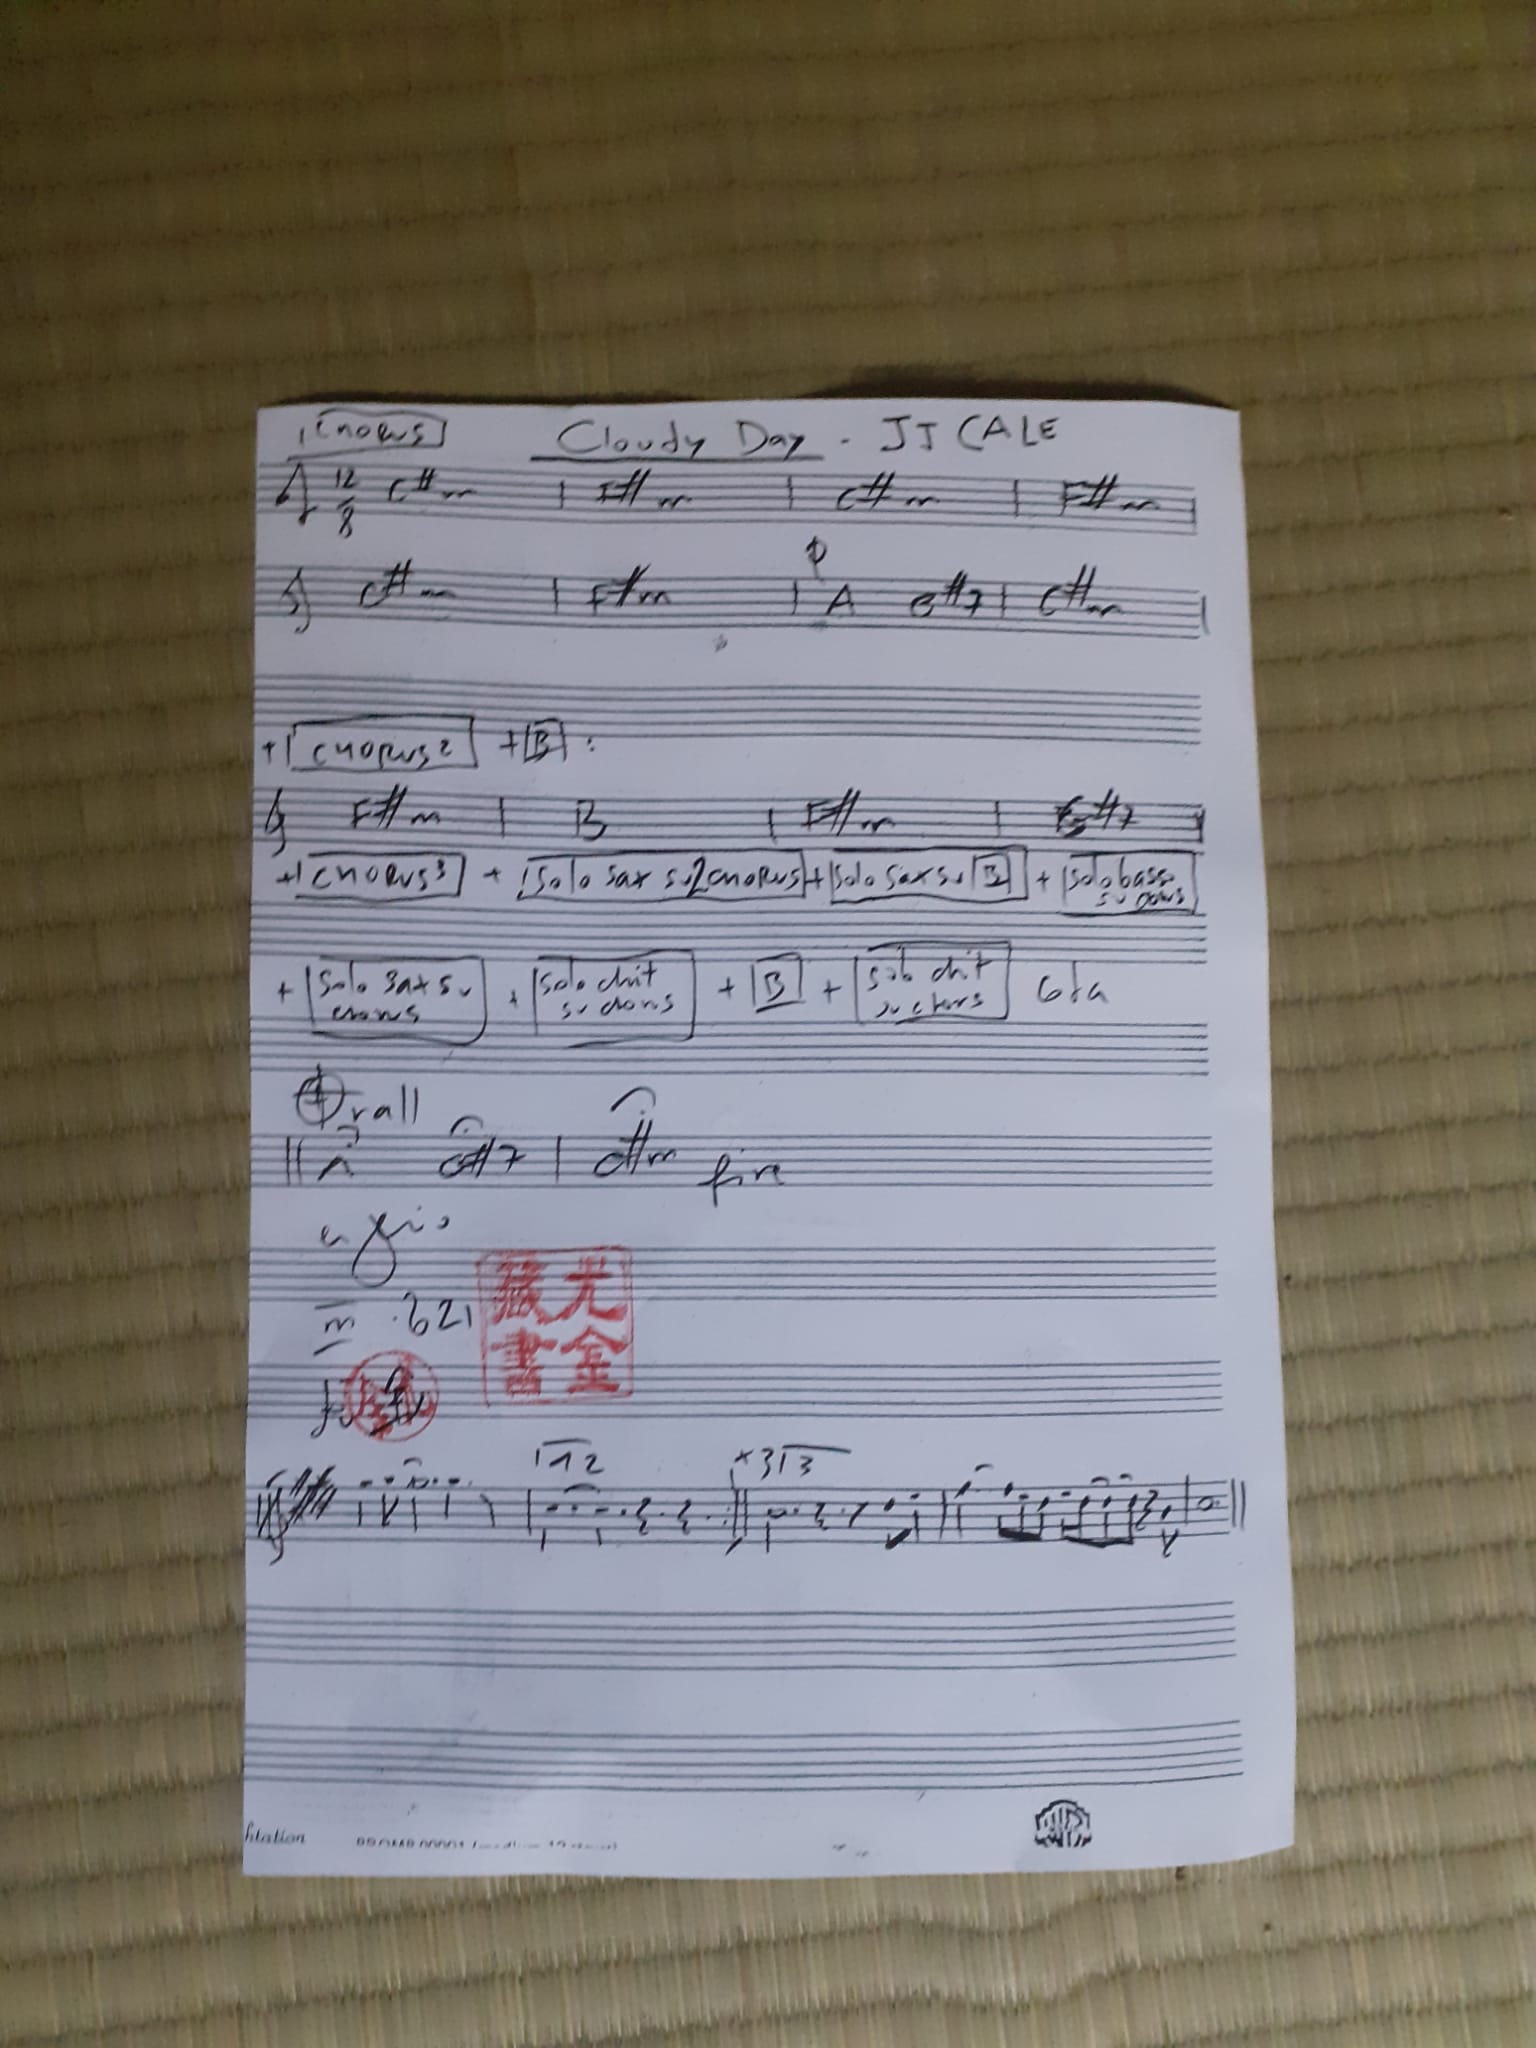 CHORUS Cloudy Day - JJ CALE
12/8 C#m | F#m | C#m | F#m
C#m | F#m | A G#7 | C#m |
+ CHORUS 2 + B :
F#m | B | F#m | G#7
+ CHORUS 3 + Solo sax su 2 CHORUS + Solo sax su B + solo basso su chorus
+ Solo sax su chorus + solo chit su chorus + B + solo chit su chorus Coda
rall
A G#7 | C#m fine
621
尤金
藏書
1 2 3